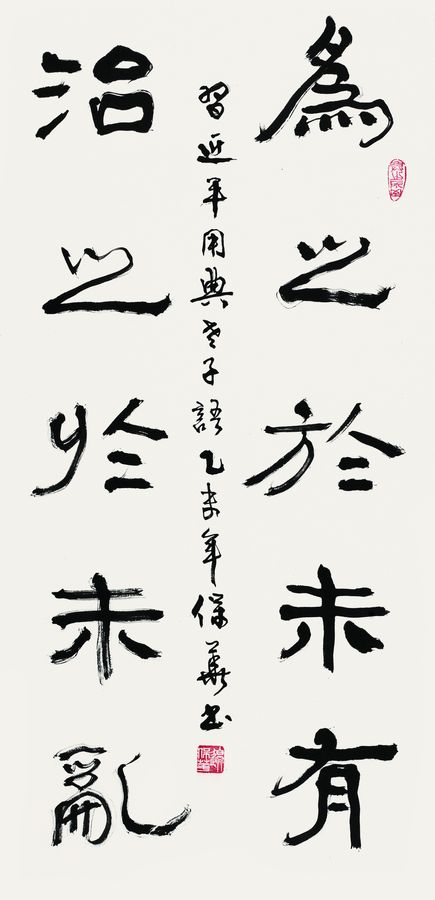 為之於未有
治之於未亂
習近平用典老子語乙未年保華書